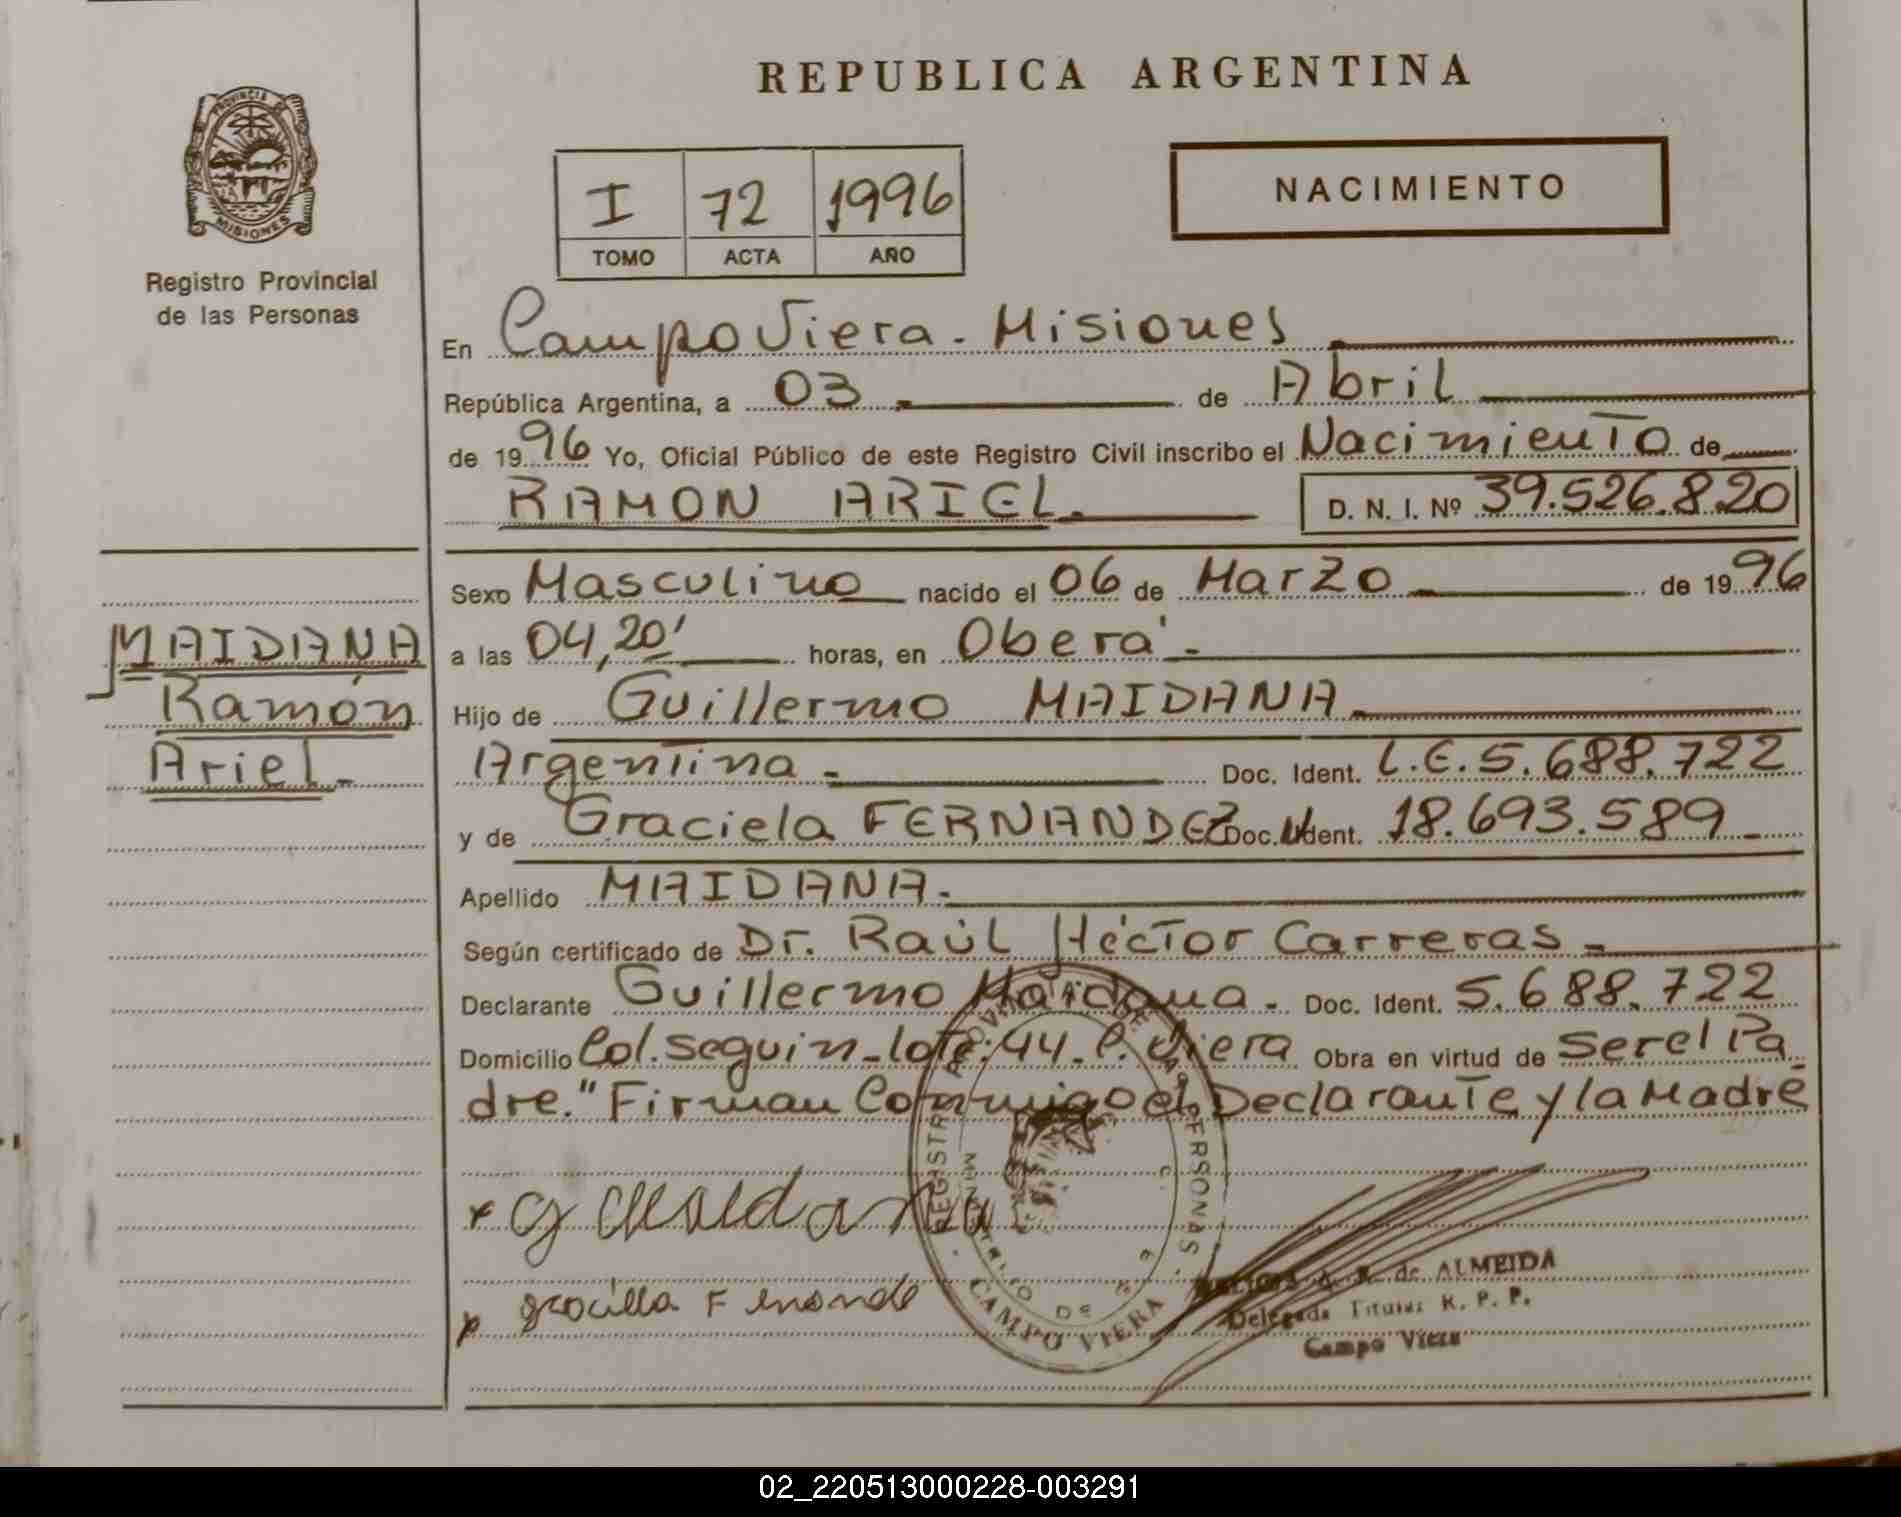 REPUBLICA ARGENTINA
PROVINCIA DE
MISIONES
Registro Provincial
de las Personas
I 72 1996
TOMO ACTA AÑO
NACIMIENTO
En Campo Viera - Misiones
República Argentina, a 03 de Abril
de 1996 Yo, Oficial Público de este Registro Civil inscribo el Nacimiento de
RAMON ARIEL.
D. N. I. Nº 39.526.820
Sexo Masculino nacido el 06 de Marzo de 1996
MAIDANA
Ramón
Ariel.-
a las 04,20' horas, en Oberá.-
Hijo de Guillermo MAIDANA
Argentina - Doc. Ident. L.E. 5.688.722
y de Graciela FERNANDEZ Doc. Ident. 18.693.589 -
Apellido MAIDANA.
Según certificado de Dr. Raúl Héctor Carreras -
Declarante Guillermo Maidana - Doc. Ident. 5.688.722
Domicilio Col. seguin - lote: 44 - C. Viera Obra en virtud de ser el Pa
dre." Firman Conmigo el Declarante y la Madre
x G Maidana
x graciela F
REGISTRO PROVINCIAL DE LAS PERSONAS
CAMPO VIERA
MINISTERIO DE
de ALMEIDA
Delegada Titular R. P. P.
Campo Viera
02_220513000228-003291